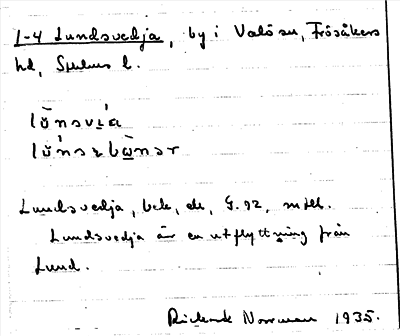 1-4 Lundsvedja, by i Valö sn, Frösåkers
hd, Sthlms l.
lŭ̀nsvı̱a
lŭ̀nsɿbω̱nər
Lundsvedja, bek, ek, G. 92, mtll.
Lundsvedja är en utflyttning från
Lund.
Rickard Norrman 1935.